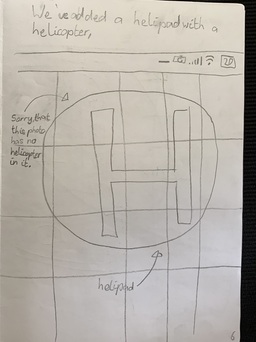 We've added a helipad with a
helicopter,
20
Sorry, that
this photo
has no
helicopter
in it.
H
helipad
6